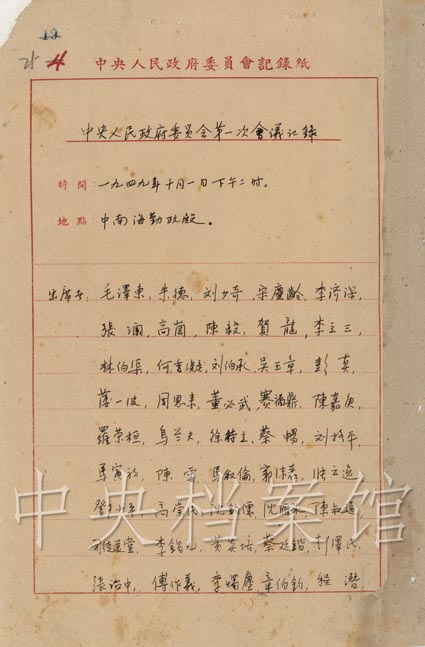 12
4
中央人民政府委員會記錄紙
中央人民政府委员会第一次會議记録
時間：一九四九年十月一日下午二时。
地點：中南海勤政殿。
出席者：毛澤東，朱德，刘少奇，宋慶齡，李济深，
張瀾，高崗，陳毅，賀龍，李立三，
林伯渠，何香凝，刘伯承，吴玉章，彭真，
薄一波，周恩来，董必武，赛福鼎，陳嘉庚，
羅荣桓，乌兰夫，徐特立，蔡暢，刘格平，
馬寅初，陳雲，馬叙倫，郭沫若，
高崇民，沈鈞儒，沈雁冰，陳叔通，
司徒美堂，李錫九，黄炎培，蔡廷鍇，彭澤民，
張治中，傅作義，李燭塵，章伯钧，程潛，
中央档案馆